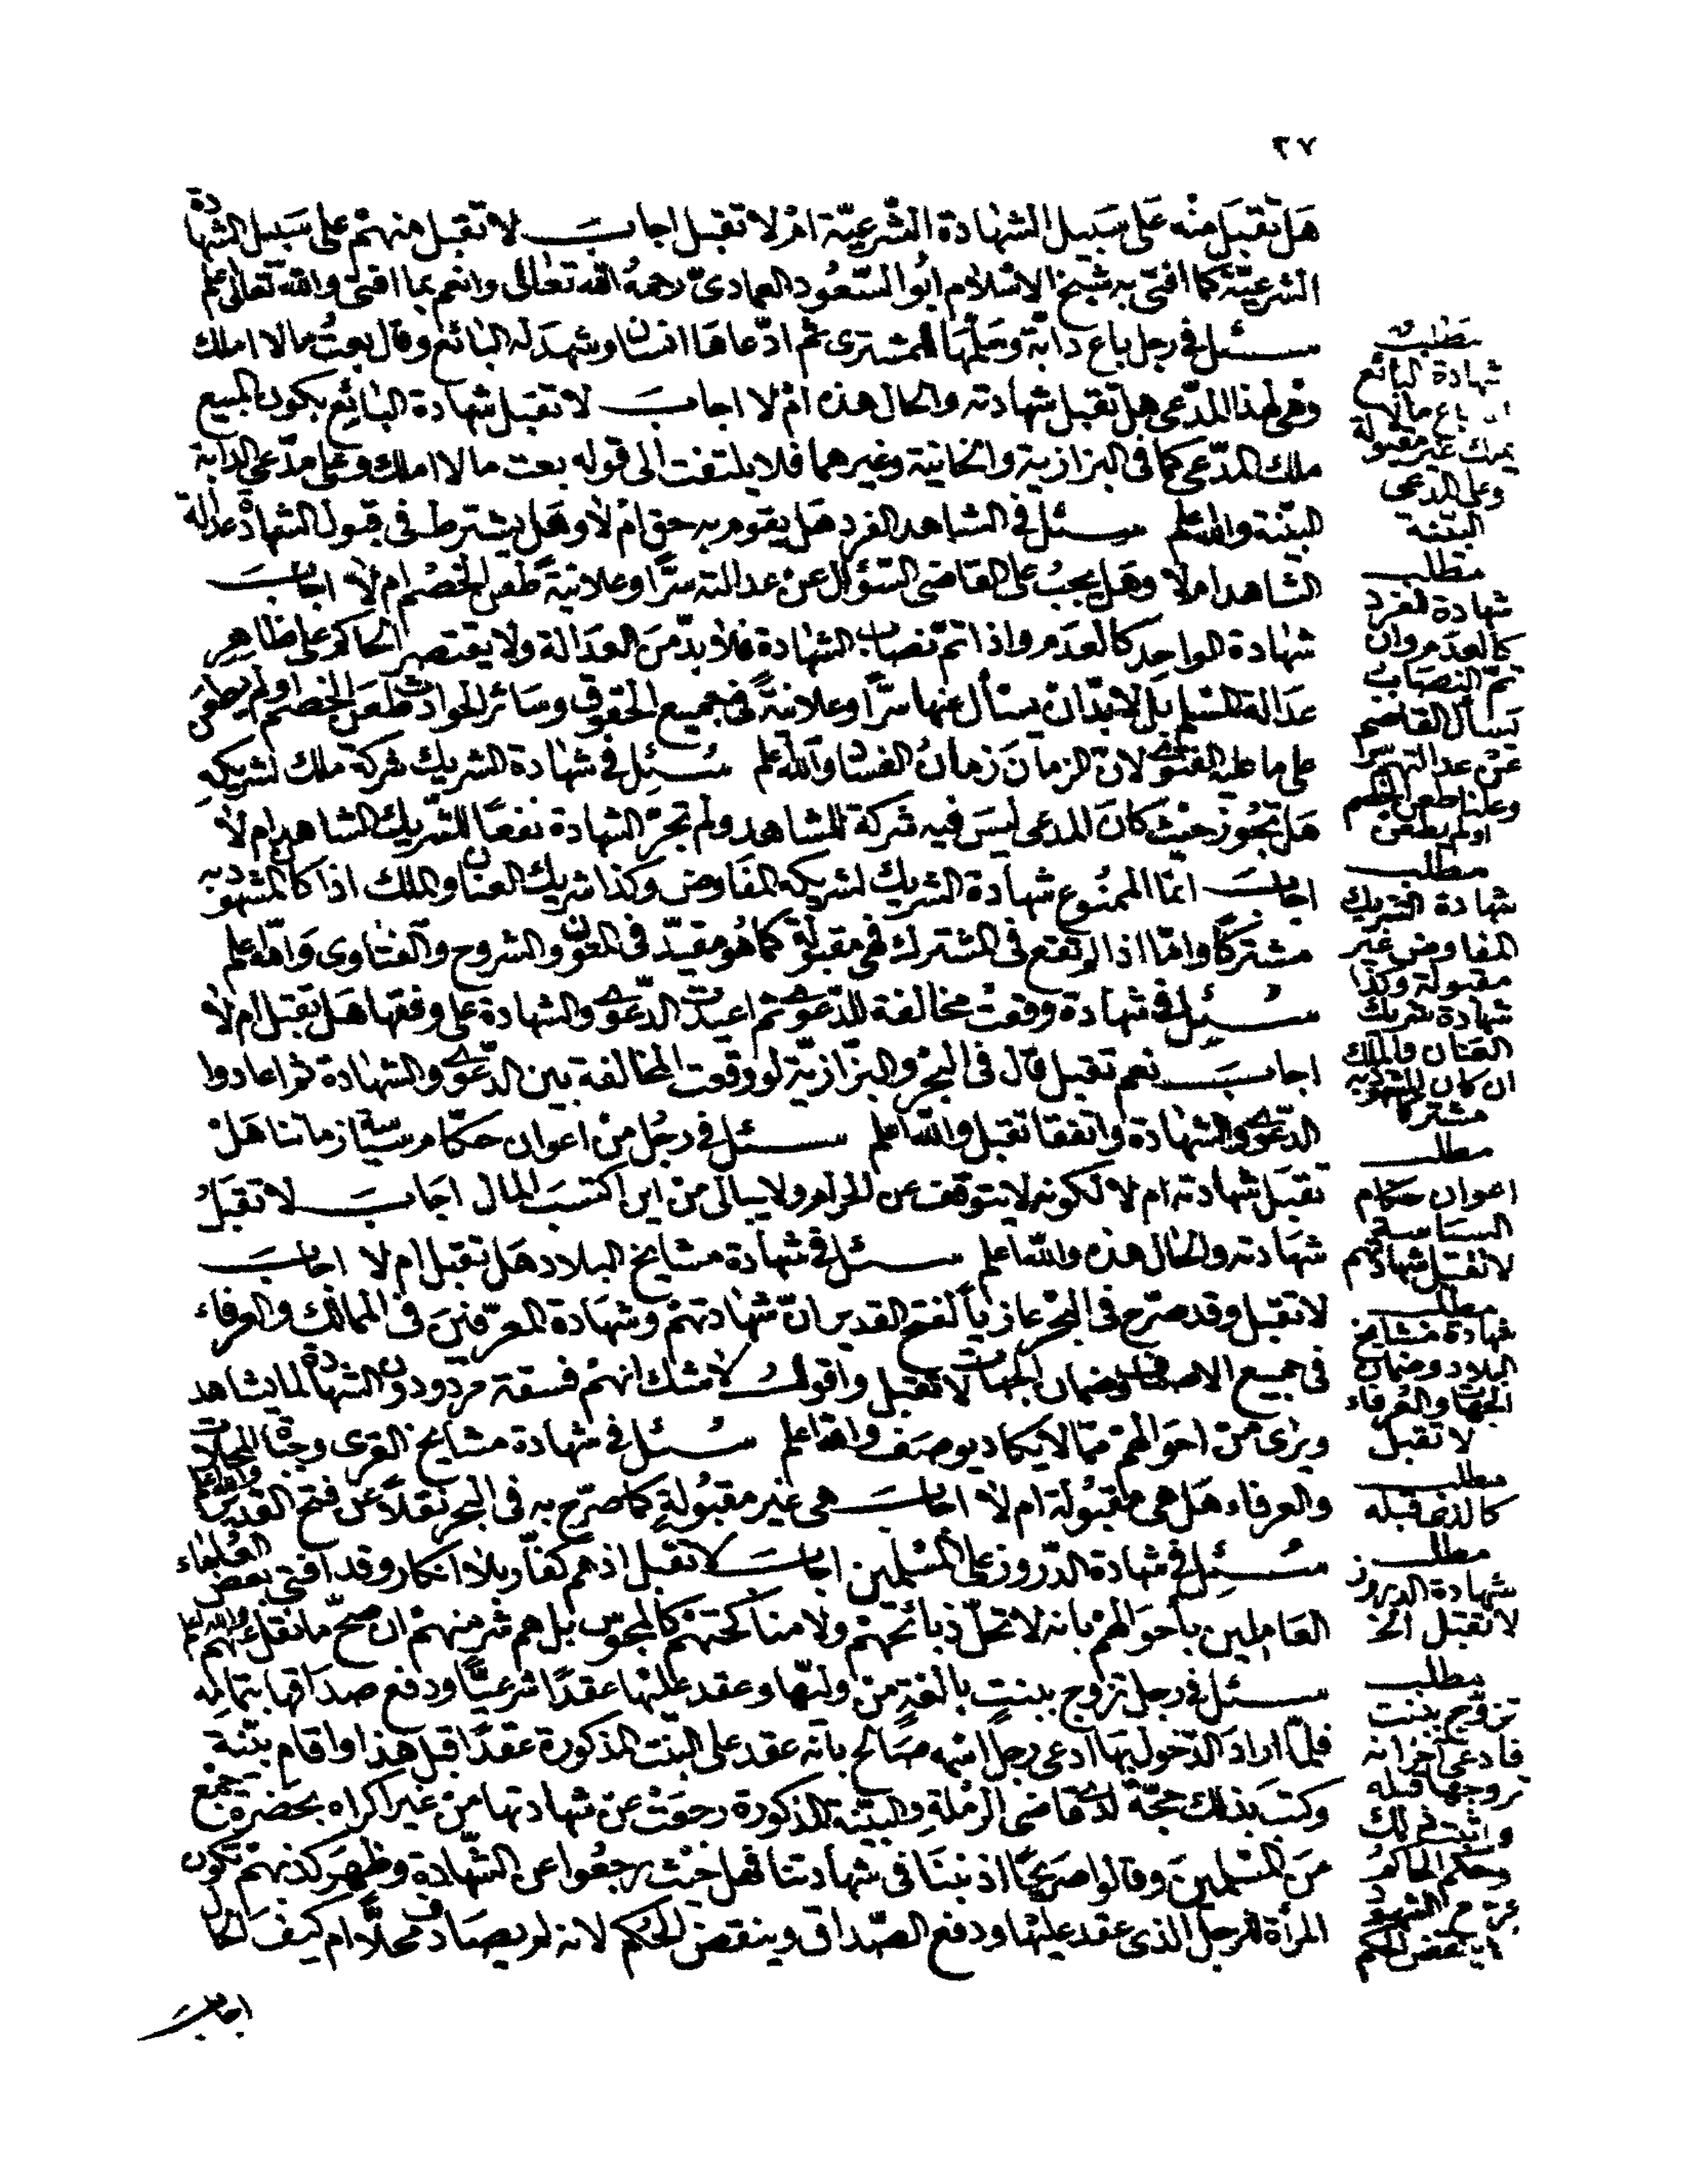 ٢٧
هَل تقبَل منْه عَلى سَبيل الشهٰادة الشّرعيّة امْ لا تقبل اجابَ لا تقبل منهمْ على سَبيل الشهادة
الشرعيّة كما افتى به شيخ الاسْلام ابُو السّعُود العمادىّ رحمهُ الله تعالى وانعم بما افتى والله تعالى اعلم
سئل فى رجل باع دابّة وسَلّمهَا للمشترى ثم ادّعاهَا انسان وشهدَ له البائع وقال بعتُ مالا املك
وهى لهذا المدّعى هل تقبل شهادته والحال هذه امْ لا اجابَ لا تقبَل شهادة البٰائع بكون المبيع
ملك المدّعى كما فى البزازية والخانية وغيرهما فلا يلتفت الى قوله بعت مالا املك وعلى مدّعى الدابة
البيّنة والله اعلم سئل فى الشاهد الفرد هَل يقوم به حق امْ لا وهَل يشترط فى قبول الشهادة عدالة
الشاهد ام لا وهَل يجبُ على القاضى السّؤال عنْ عدالته سرًّا وعلانيةً طعن الخصْم ام لا اجابَ
شهٰادة الواحِد كالعدَم واذا تمّ نصاب الشهٰادة فلا بدّ منَ العدَالة ولا يقتصر الحاكم على ظاهِر
عدَالة المسْلم بل لا بدّ ان يسأل عنها سرًّا وعلانيةً فى جميع الحقوق وسَائر الحوادث طعَن الخصْم او لم يطعن
على ما عليه الفتوى لان الزمانَ زمانُ الفسَاد والله اعلم سُئِل فى شهٰادة الشريك شركة ملك لشريكهِ
هَل تجُوز حيْث كانَ المدعى ليسَ فيه شركة للشاهد ولم تجرّ الشهادة نفعًا للشّريك الشاهد ام لا
اجابَ انمّا الممنُوع شهادة الشريك لشريكه المفَاوض وكذا شريك العنان والملك اذا كان المشهود به
مشتركًا وامّا اذا لم تقع فى المشترك فهى مقبولة كما هُو مقيّد فى المتون والشروح والفتٰاوى والله اعلم
سُئِل فى شهادة وقعتْ مخالفة للدّعوى ثم اعيدت الدّعوى والشهادة على وفقها هَل تقبل ام لا
اجابَ نعم تقبل قال فى البحْر والبزّازيّة لو وقعت المخالفة بين الدّعوى والشهٰادة ثم اعادوا
الدّعوى والشهٰادة واتفقا تقبل والله اعلم سئل فى رجُل منْ اعوان حكّام سيّاسة زماننا هَلْ
تقبَل شهادته ام لا لكونه لا يتوقف عن الحرام ولا يبالى منْ اين اكتسَب المال اجَابَ لا تقبَلُ
شهَادته والحال هذه والله اعلم سئل فى شهٰادة مشايخ البلاد هَل تقبل ام لا اجابَ
لا تقبل وقد صرّح فى البحْر عازيًا لفتح القدير انّ شهٰادتهمْ وشهَادة المعرّفينَ فى المراكب والعرفاء
فى جميع الاصناف وضمان الجهات لا تقبل واقول لا شك انهمْ فسقة مردودون الشهادة لما يشاهد
ويرٰى منْ احوَالهمْ ممّا لا يكاد يوصَف والله اعلم سُئل فى شهادة مشايخ القرى وجباة المحلات
والعرفاء هَل هى مقبُولة ام لا اجابَ هى غير مقبُولةٍ كما صرّح به فى البحر نقلًا عن فتح القدير والله اعلم
سُئِل فى شهادة الدّروز على المسْلمين اجابَ لا تقبل اذ هم كفّار بلا انكار وقد افتى بعض العلماء
العَاملين بأحوَالهمْ بانه لا تحلّ ذبائحهمْ ولا مناكحتهمْ كالمجوس بل هم شر منهمْ ان صحّ ما نقل عنهم والله اعلم
سئل فى رجل تزوج ببنتٍ بالغةٍ منْ وليّها وعقد عليْها عقدًا شرعيًّا ودفع صدَاقها بتمامِه
فلمّا ارادَ الدّخول بهَا ادعى رجل اسْمه صَالح بانه عقد على البنْت المذكورة عقدًا قبل هذا واقام بيّنة
وكتبَ بذلك حجّة لدى قاضى الرمْلةِ والبيّنة المذكورة رجعَتْ عن شهادتها منْ غير اكراه بحَضرة جمع
منَ المسْلمينَ وقالوا صَريحًا اذ نبنَا فى شهادتنا فهل حيْث رجعُوا عن الشّهادة وظهَر كذبهمْ تكون
المرأة للرجل الذى عقد عليْها ودفع الصّداق وينقض الحكم لانه لم يصادف محلًّا ام كيفَ الحال
اجابَ
مَطلب
شهادة البائع
باع مالا
يملك غير مقبولة
وعلى المدعى
البيّنة
مطلب
شهادة الفرد
كالعدَم وان
تمّ النصاب
يَسأل القاضى
عنْ عدالته سرا
وعلنا طعن الخصم
او لم يطعن
مطلب
شهادة الشريك
المفاوض غير
مقبولة وكذا
شهادة شريك
العنان والملك
ان كان المشهود به
مشتركا
مطلب
اعوان حكام
السيَاسة
لا تقبل شهادتهم
مطلب
شهادة مشايخ
البلاد وضمان
الجهات والعُرفاء
لا تقبل
مطلب
كالذى قبله
مطلب
شهادة الدروز
لا تقبل الخ
مطلب
تزوّج ببنت
فادعى آخر انه
تزوجها قبله
واثبت ذلك
وحكم الحاكم
ثم رجع الشهود
ينقض الحكم